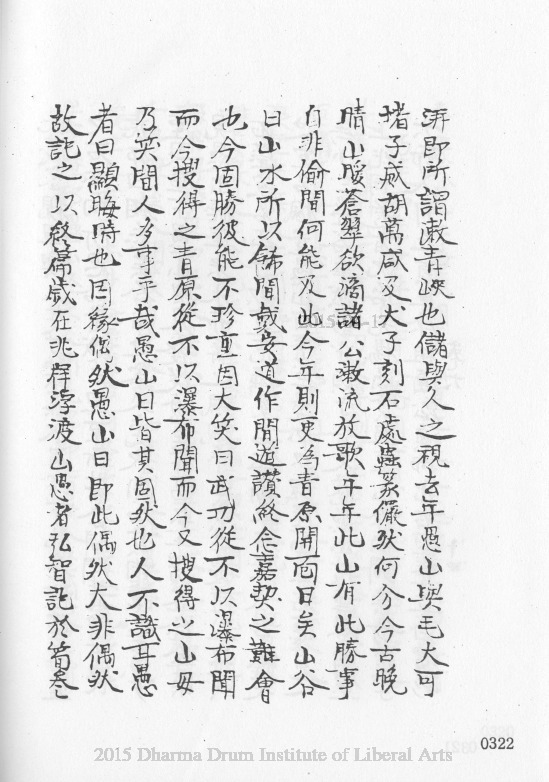 湃即所謂漱青峽也儲與久之視去年愚山與毛大可
堵子威胡萬咸及犬子刻石處蟲篆儼然何分今古晚
晴山暖蒼翠欲滴諸公漱流放歌年年此山有此勝事
自非偷閒何能及此今年則更為青原開面目矣山谷
曰山水所以飾閒戴安道作閒遊讚終念嘉契之難會
也今固勝彼能不珍重因大笑曰武功從不以瀑布聞
而今搜得之青原從不以瀑布聞而今又搜得之山毋
乃笑閒人多事乎哉愚山曰皆其固然也人不識耳愚
者曰顯晦時也因緣偶然愚山曰即此偶然大非偶然
故記之以終篇歲在兆𦍤浮渡山愚者弘智記於筍巻
0322
2015 Dharma Drum Institute of Liberal Arts